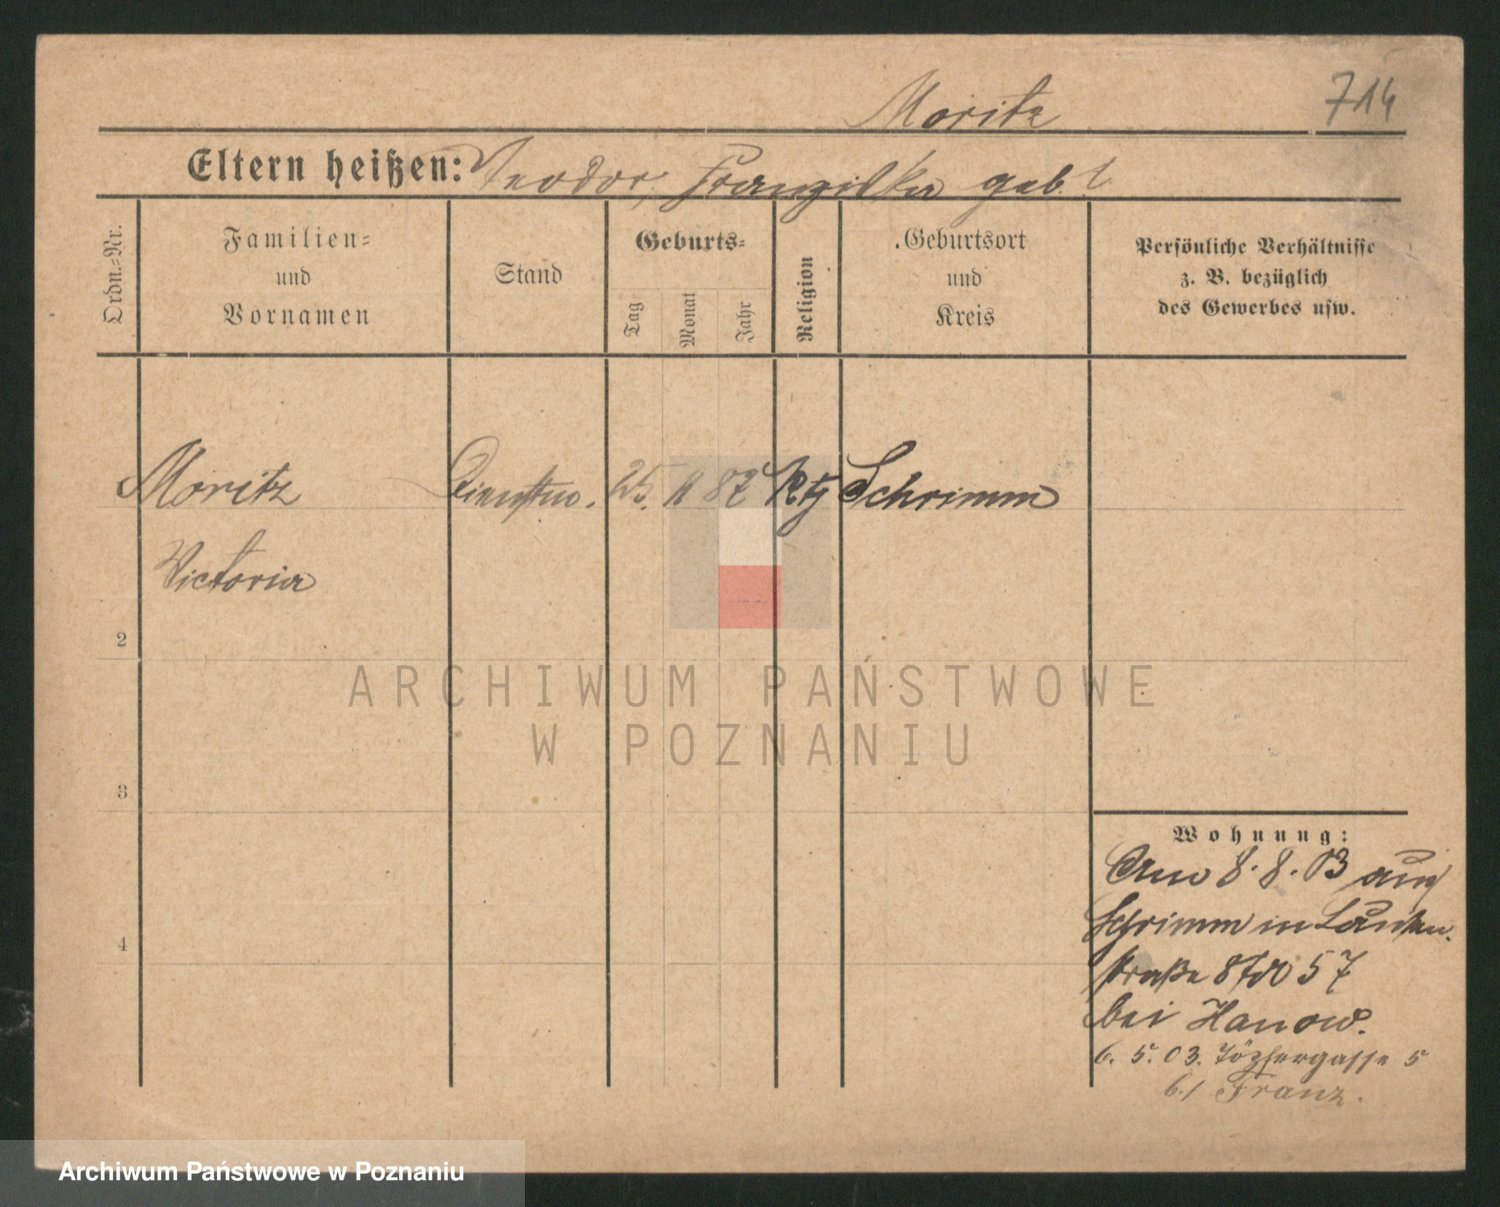 Moritz 714
Eltern heißen: Teodor, Franziska geb.
Ordn.-Nr.
Familien-
und
Vornamen
Stand
Geburts-
Tag
Monat
Jahr
Religion
Geburtsort
und
Kreis
Persönliche Verhältnisse
z. B. bezüglich
des Gewerbes usw.
Moritz
Victoria
25. 11 82
Schrimm
2
3
4
Wohnung:
8. 8. 03 aus
Schrimm in
straße 57
bei Hanow.
6. 5. 03. Töpfergasse 5
b./ Franz.
ARCHIWUM PAŃSTWOWE
W POZNANIU
Archiwum Państwowe w Poznaniu